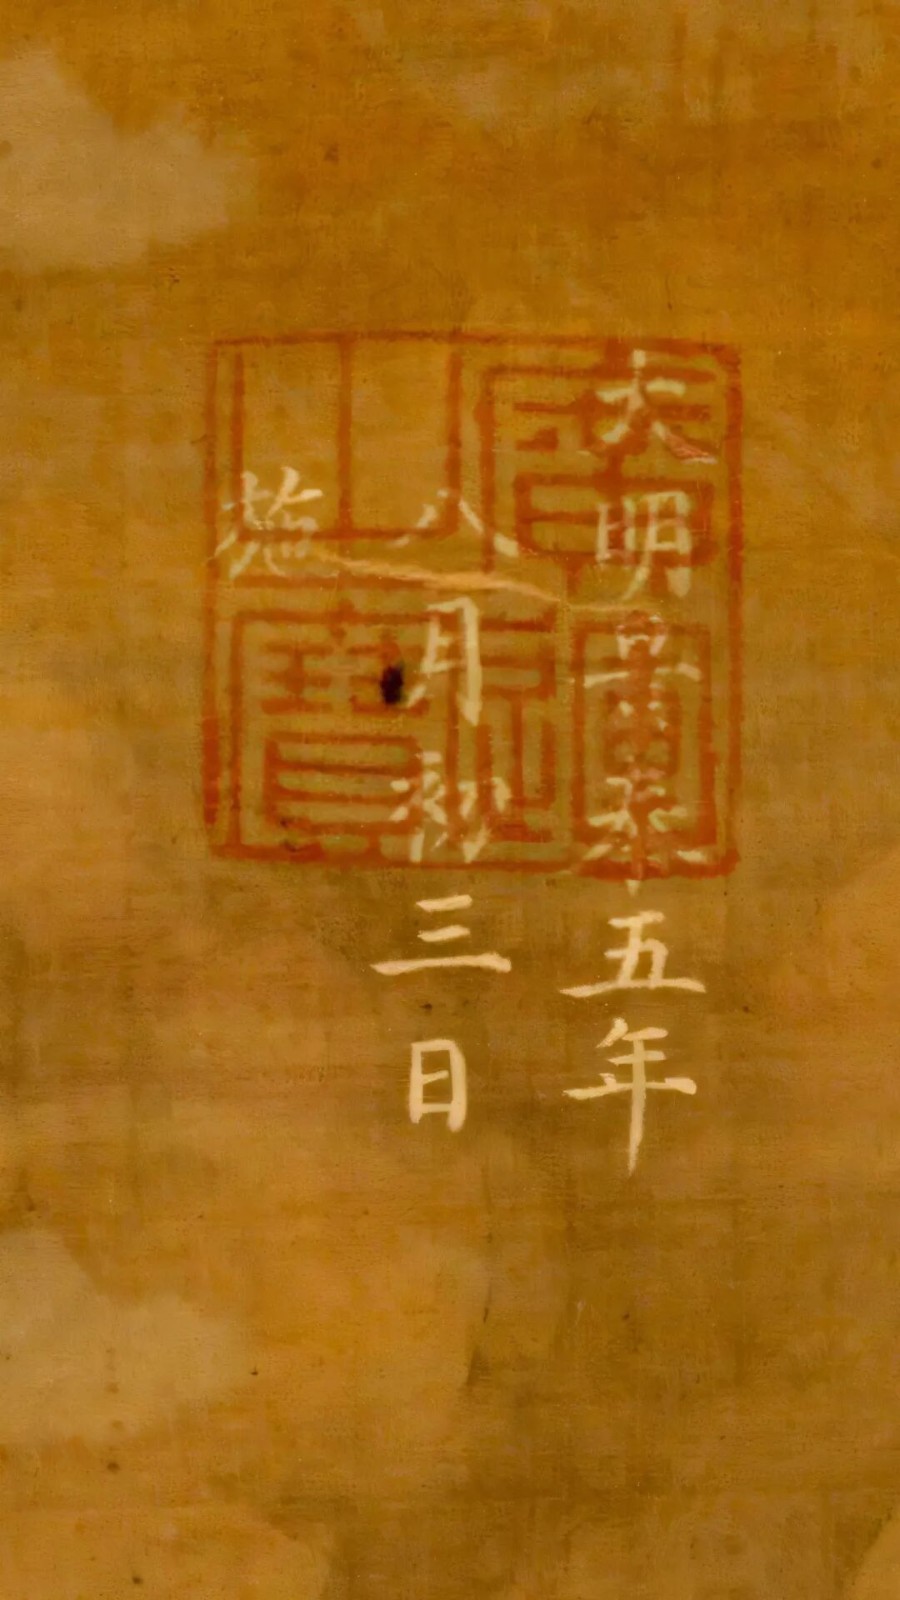 大明景泰五年
八月初三日
施
廣運
之寶